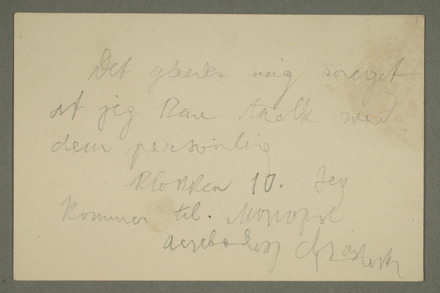 Det glæder mig meget
at jeg kan tale med
dem personlig
Klokken 10. Jeg
kommer til. Monopol